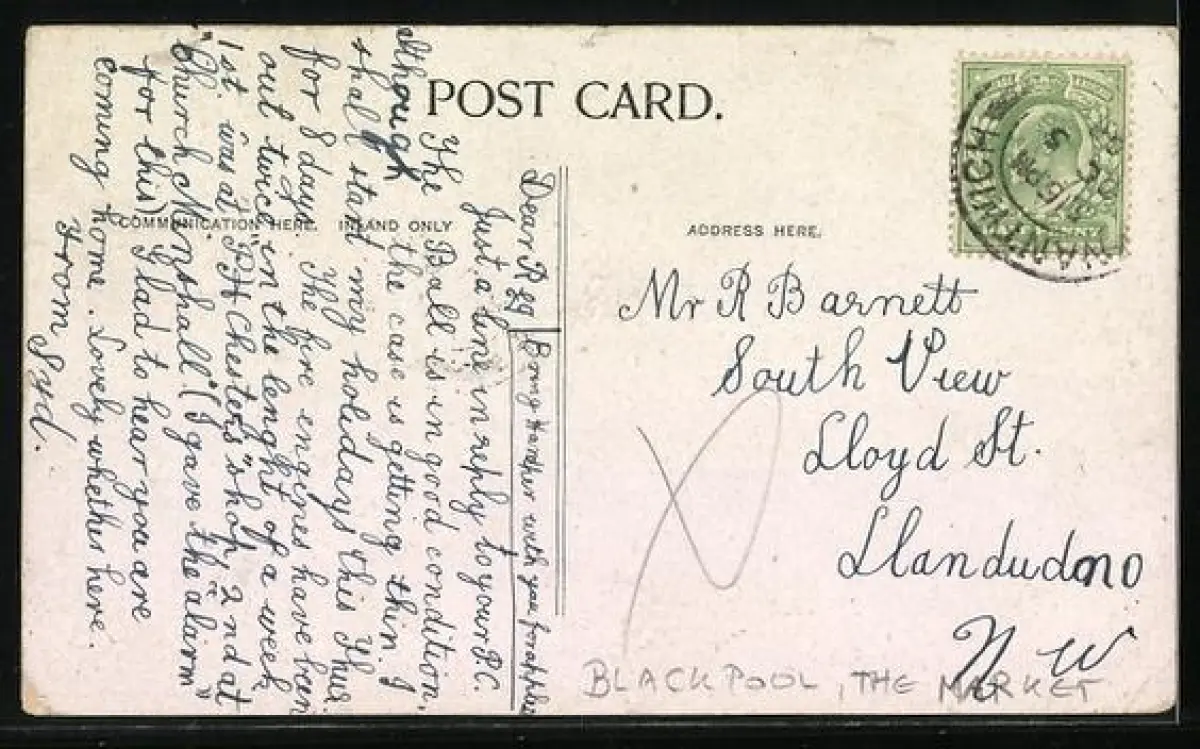 POST CARD.
COMMUNICATION HERE. INLAND ONLY
ADDRESS HERE.
Dear Reg
Just a line in reply to your P.C.
The Ball is in good condition,
although the case is getting thin. I
shall start my holidays this Thur
for 8 days. The fire engines have been
out twice in the lenght of a week
1st. was at "P H Chesters" shop, 2nd at
"Church Minshall". (I gave the alarm
for this) Glad to hear you are
coming home. Lovely whether here.
From Syd.
Bring Harther with you for apples
Mr R Barnett
South View
Lloyd St.
Llandudno
N W
BLACKPOOL, THE MARKET
NANTWICH